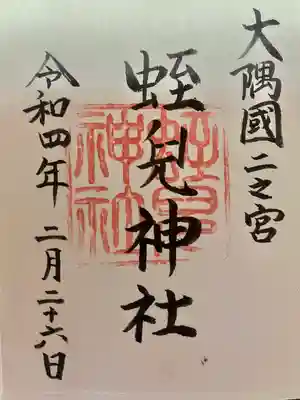 大隅國二之宮
蛭兒神社
令和四年 二月二十六日
蛭兒
神社